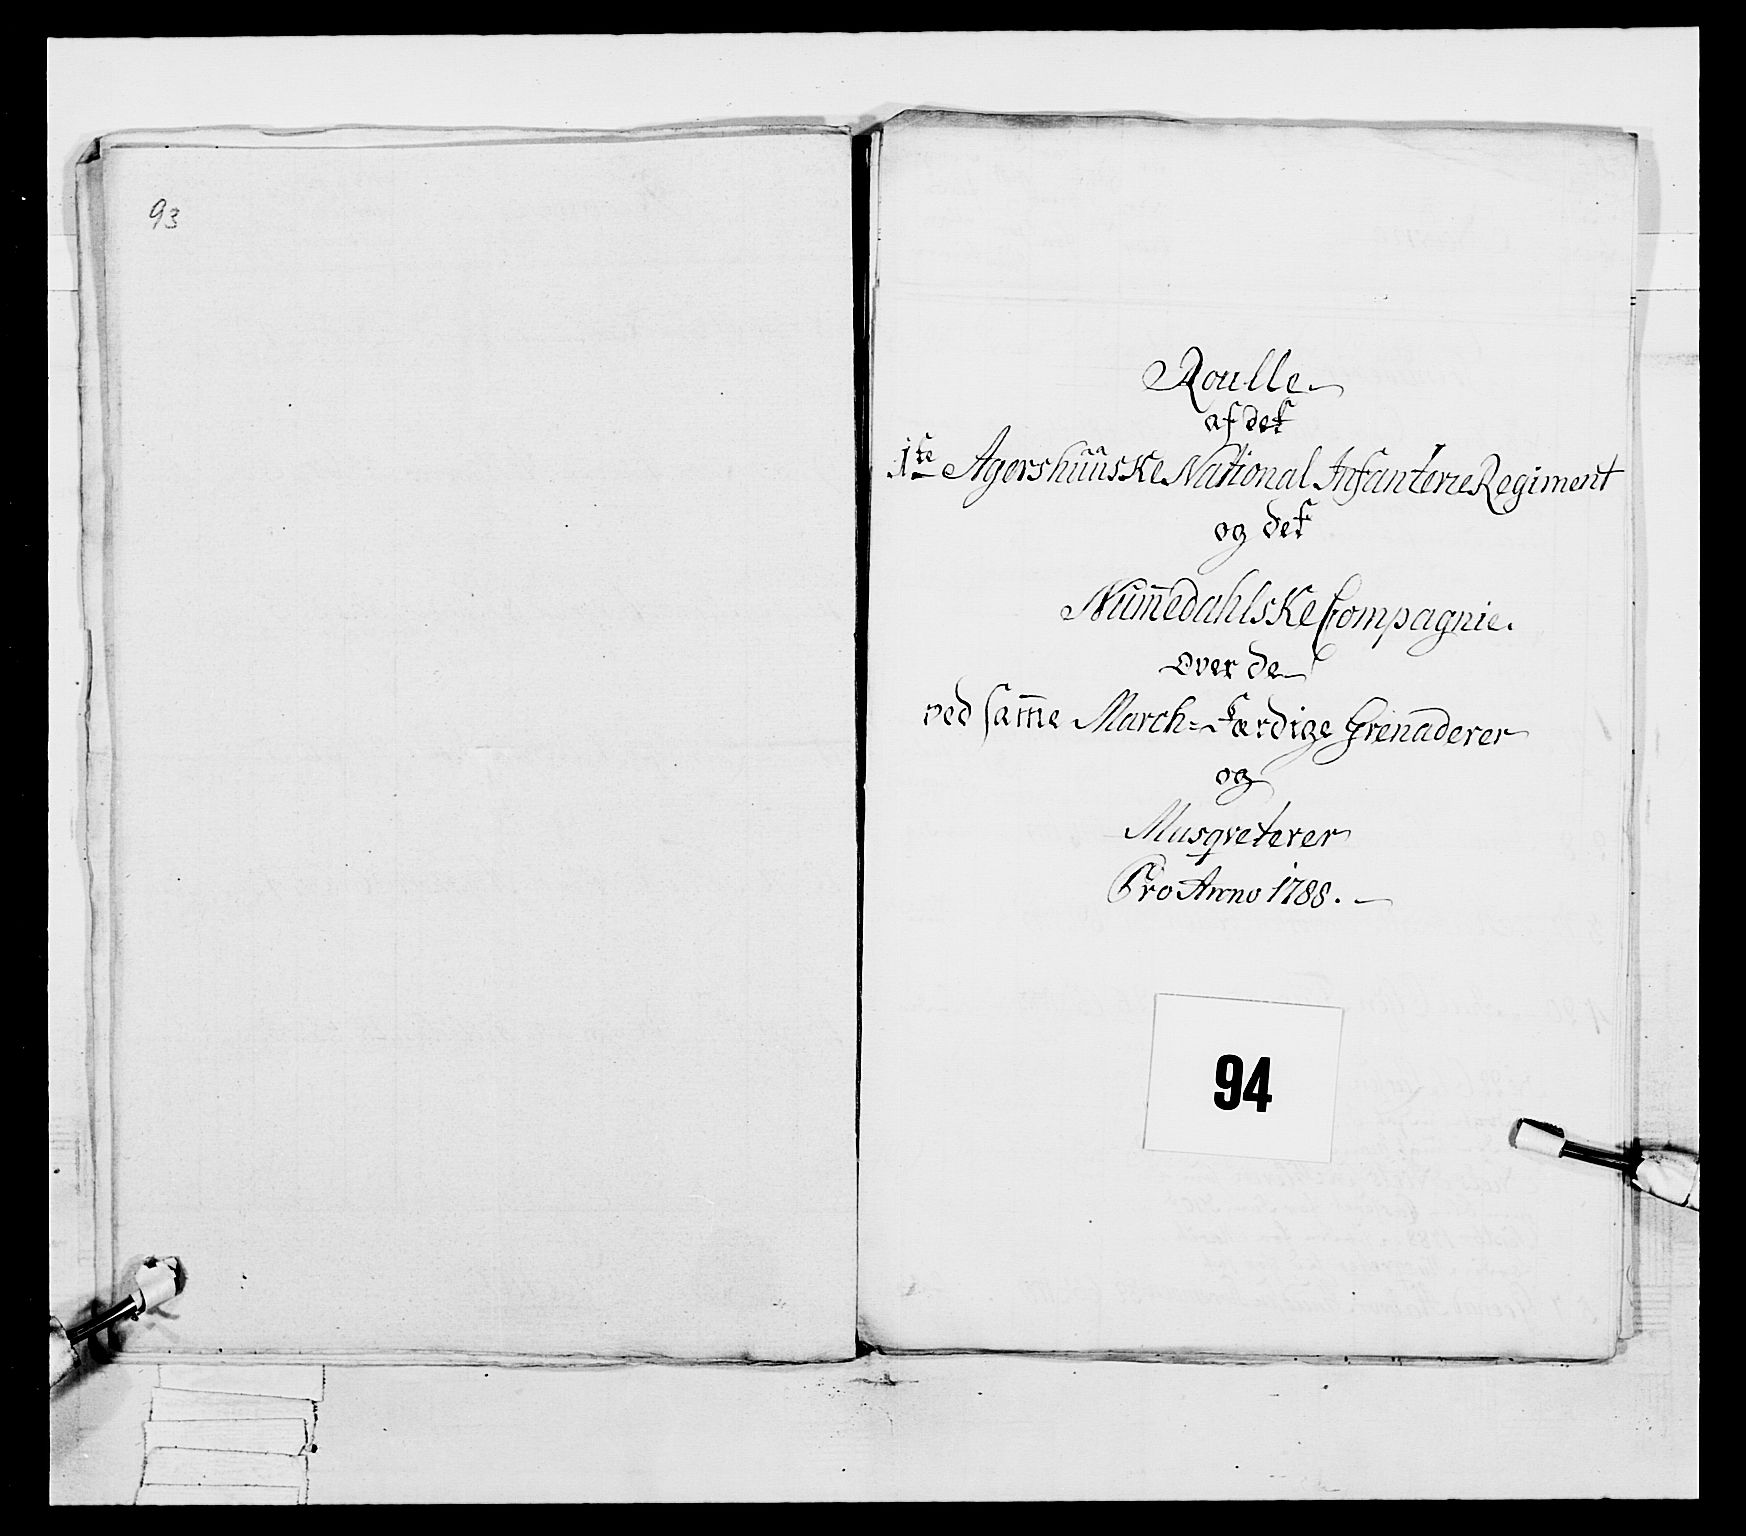 93
Roulle
af det
1ste Agershuuske National Infanterie Regiment
og det
Num̄edahlske Compagnie.
over de
ved sam̄e March-færdige Grenaderer
og
Musqveterer
Pro Anno 1788. —
94